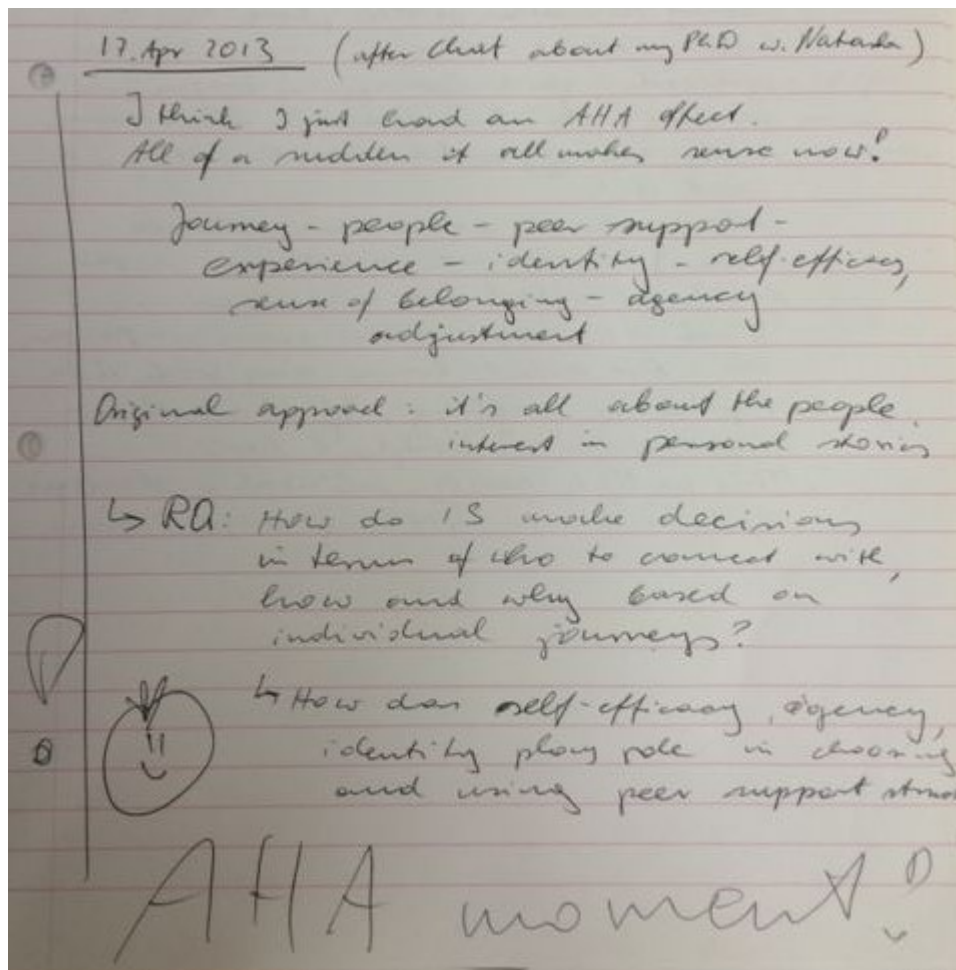 17. Apr 2013 (after chat about my PhD w. Natasha)
I think I just had an AHA effect.
All of a sudden it all makes sense now!
Journey - people - peer support -
experience - identity - self-efficacy,
sense of belonging - agency
adjustment
Original approach: it's all about the people,
interest in personal stories
↳ RQ: How do IS make decisions
in terms of who to connect with,
how and why based on
individual journeys?
↳ How does self-efficacy, agency,
identity play role in choosing
and using peer support
AHA moment!